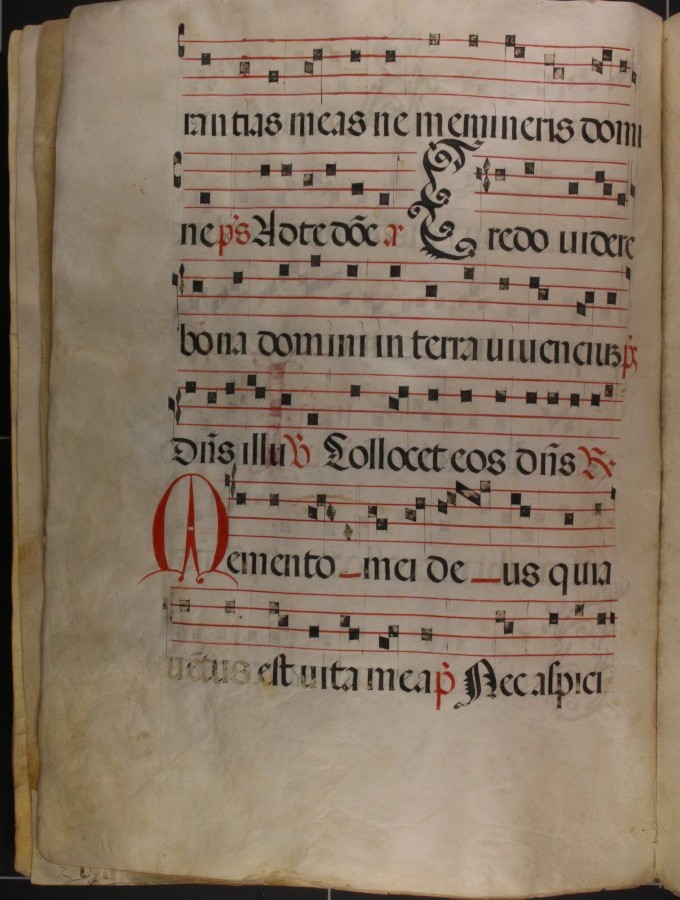 rantias meas ne memineris domi
ne p̄s Ad te dōe a
Credo uidere
bona domini in terra uiuencius p̄s
Dn̄s illu ℣ Collocet eos dn̄s ℟
Memento mei de us quia
uentus est uita mea p̄ Nec aspici